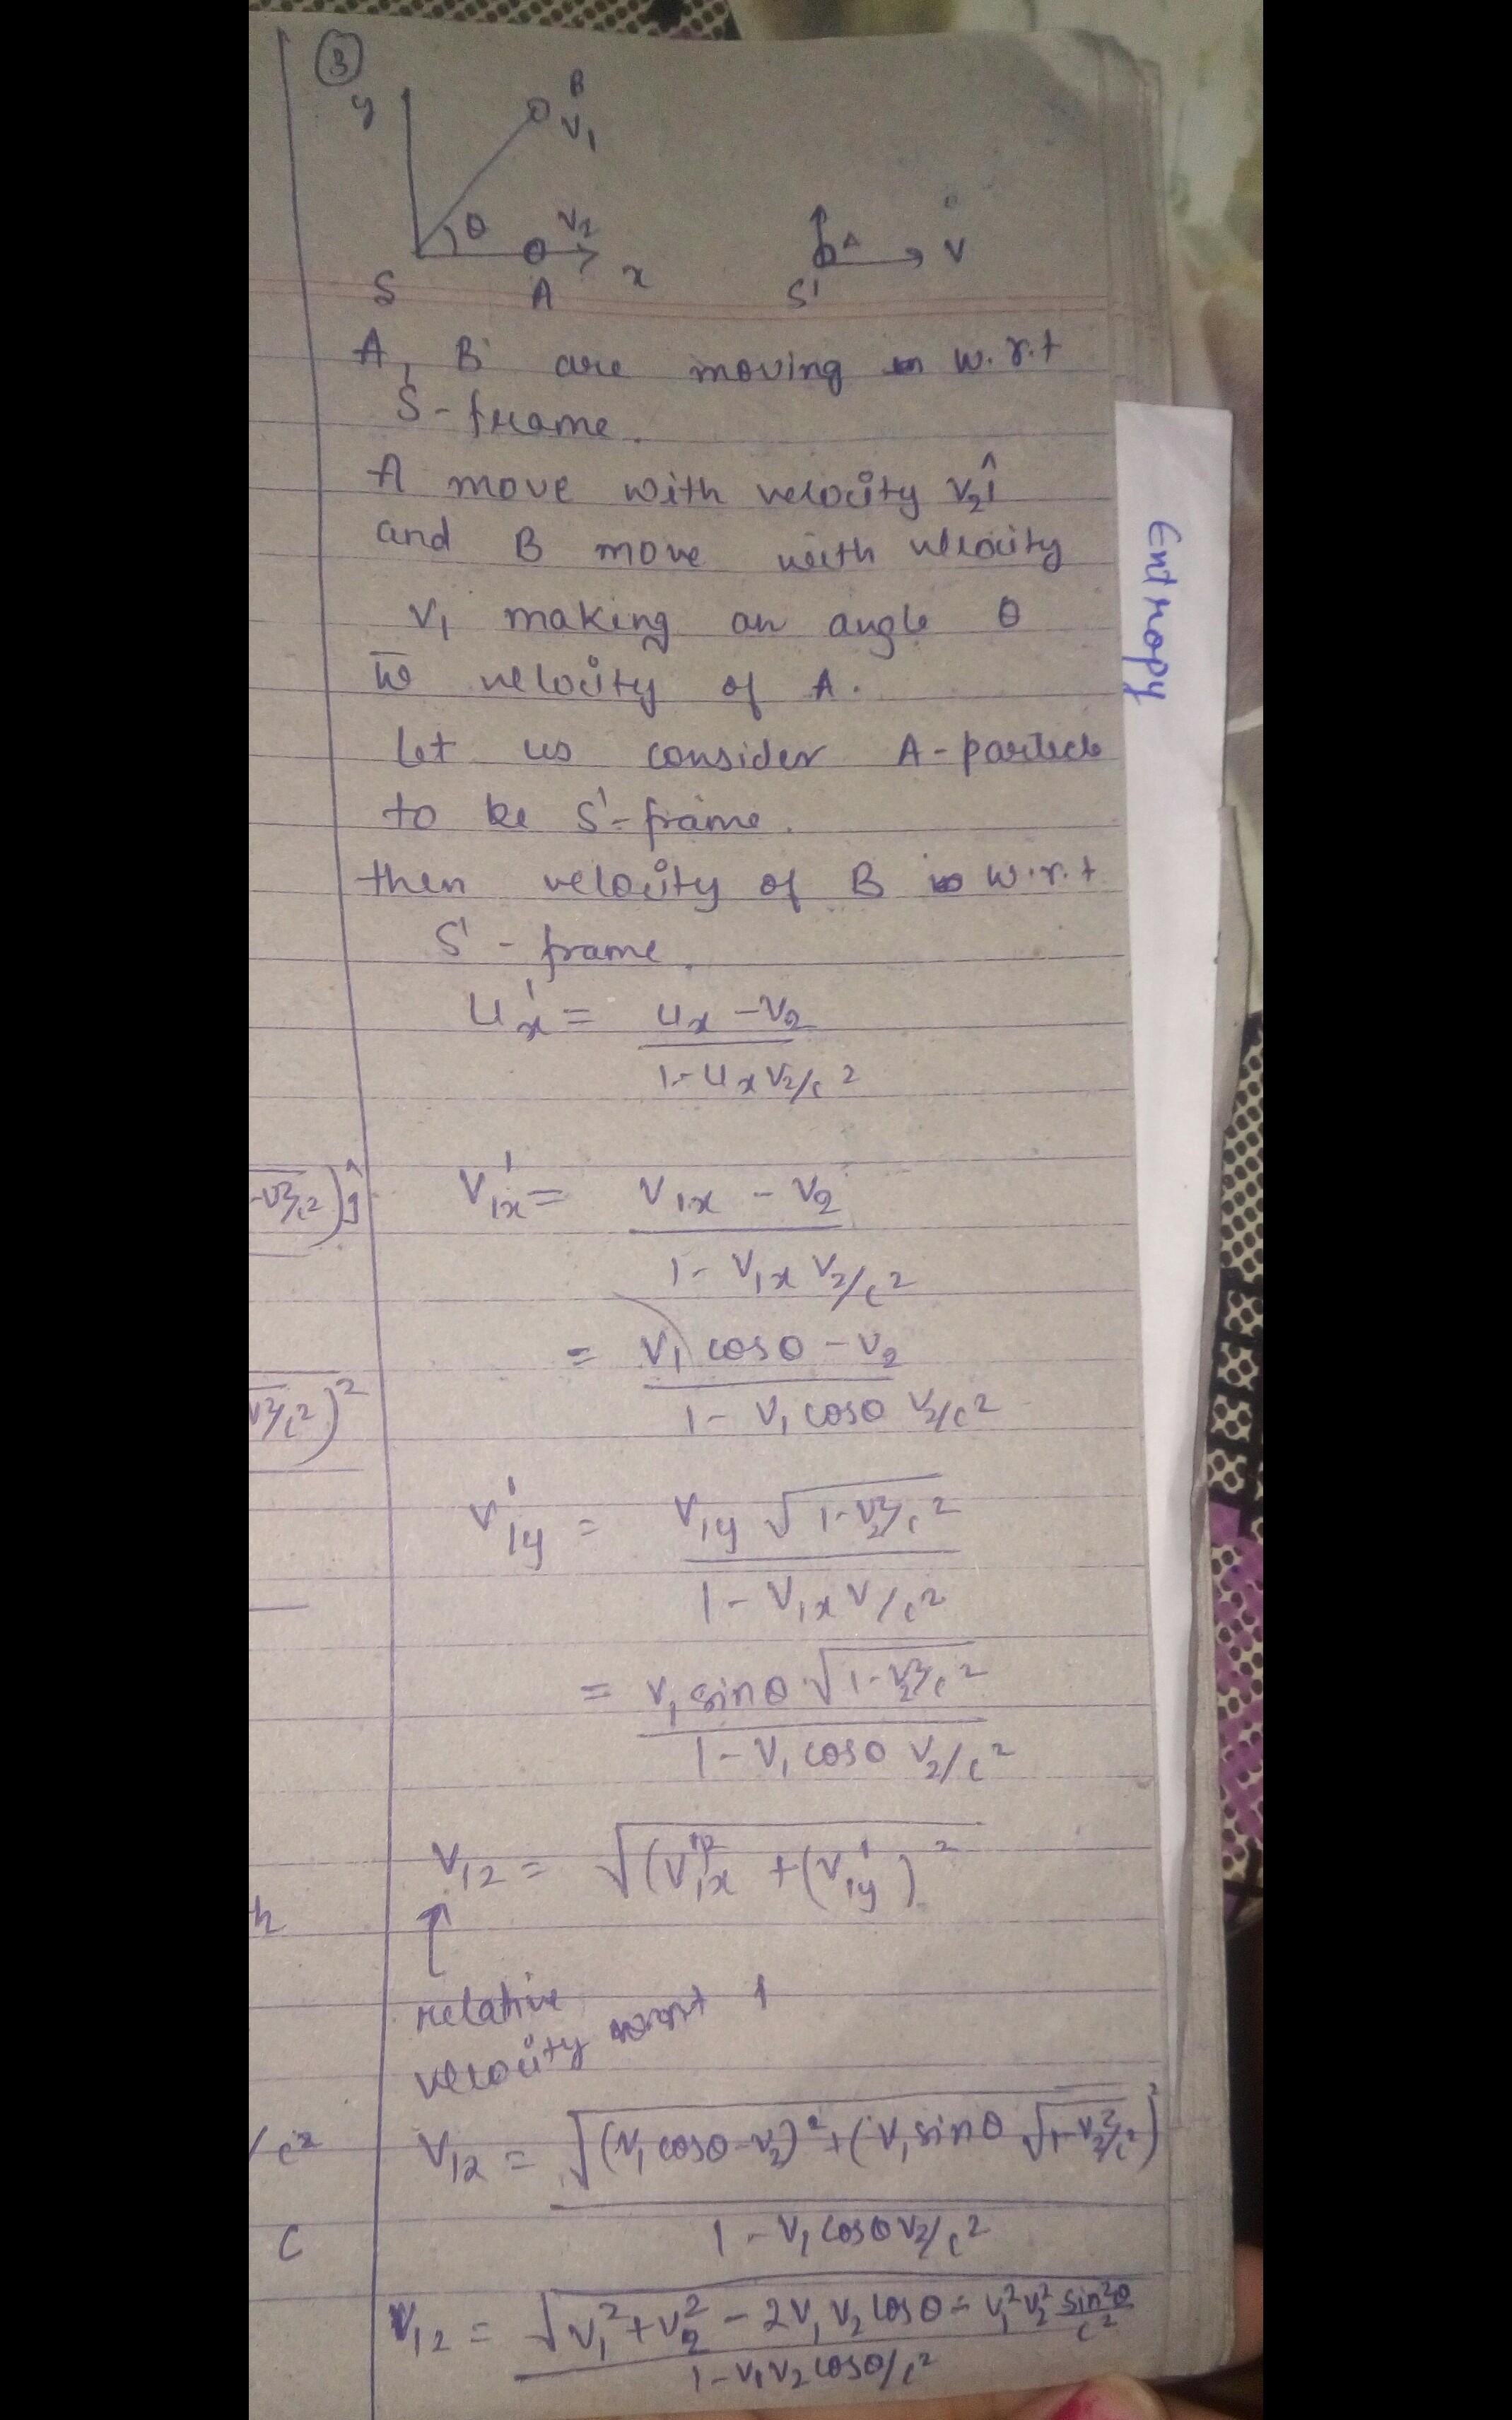 3
y
B
V₁
θ
V₂
x
S
A
A
V
S'
A, B are moving w.r.t
S-frame.
A move with velocity V₂î
and B move with velocity
V₁ making an angle θ
w̄ velocity of A.
Let us consider A-particle
to be S'-frame.
then velocity of B w.r.t
S' - frame.
u'ₓ = (uₓ - V₂) / (1 - uₓ V₂/c²)
V'₁ₓ = (V₁ₓ - V₂) / (1 - V₁ₓ V₂/c²)
= (V₁ cosθ - V₂) / (1 - V₁ cosθ V₂/c²)
V'₁y = V₁y √(1 - V₂²/c²) / (1 - V₁ₓ V/c²)
= V₁ sinθ √(1 - V₂²/c²) / (1 - V₁ cosθ V₂/c²)
V₁₂ = √((V'₁ₓ)² + (V'₁y)²)
↑
relative
velocity
V₁₂ = √((V₁ cosθ - V₂)² + (V₁ sinθ √(1 - V₂²/c²))²) / (1 - V₁ cosθ V₂/c²)
V₁₂ = √(V₁² + V₂² - 2V₁V₂ cosθ - V₁²V₂² sin²θ/c²) / (1 - V₁V₂ cosθ/c²)
Entropy
-v²/c²)ĵ
v²/c²)²
h
/c²
c